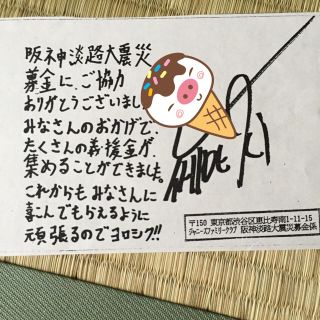 阪神淡路大震災
募金に、ご協力
ありがとうございまし
みなさんのおかげで、
たくさんの義援金が、
集めることができました。
これからもみなさんに
喜んでもらえるように
頑張るのでヨロシク!!
〒150 東京都渋谷区恵比寿南1-11-15
ジャニーズファミリークラブ 阪神淡路大震災募金係